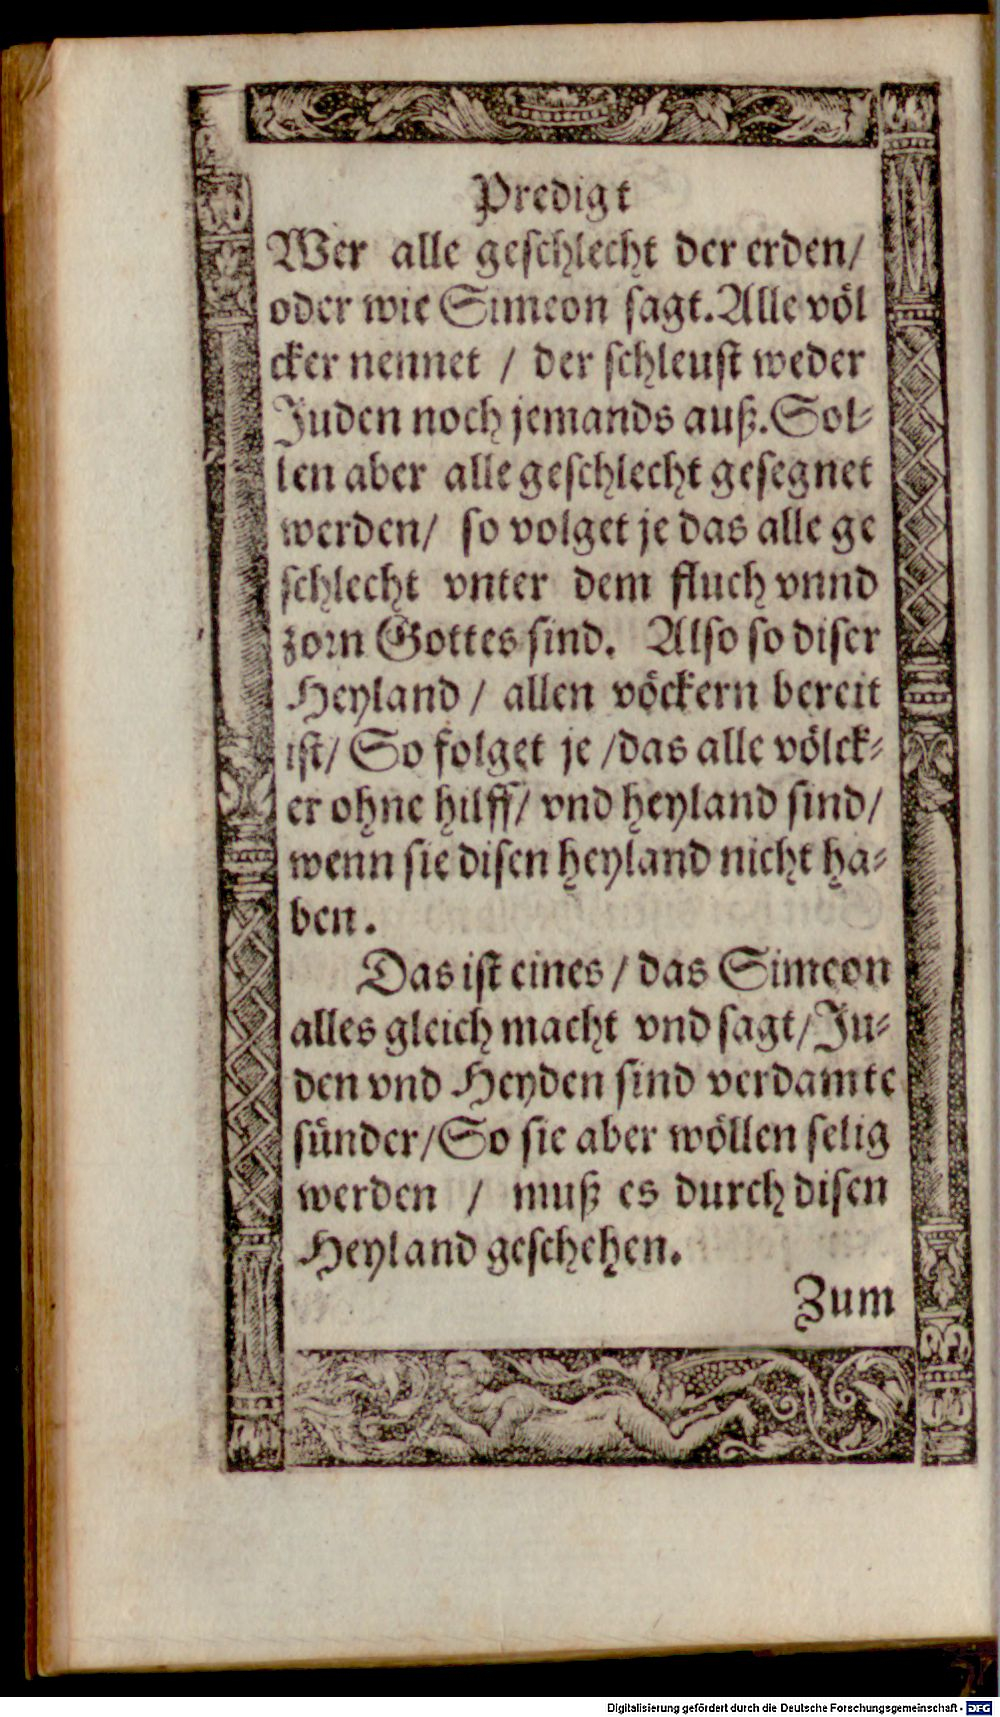 Predigt
Wer alle geschlecht der erden/
oder wie Simeon sagt. Alle völ
cker nennet / der schleust weder
Juden noch jemands auß. Sol⸗
len aber alle geschlecht gesegnet
werden/ so volget je das alle ge
schlecht vnter dem fluch vnnd
zorn Gottes sind. Also so diser
Heyland / allen vöckern bereit
ist/ So folget je /das alle völck⸗
er ohne hilff/ vnd heyland sind/
wenn sie disen heyland nicht ha⸗
ben.
Das ist eines / das Simeon
alles gleich macht vnd sagt/ Ju⸗
den vnd Heyden sind verdamte
sünder/ So sie aber wöllen selig
werden / muß es durch disen
Heyland geschehen.
Zum
Digitalisierung gefördert durch die Deutsche Forschungsgemeinschaft - DFG